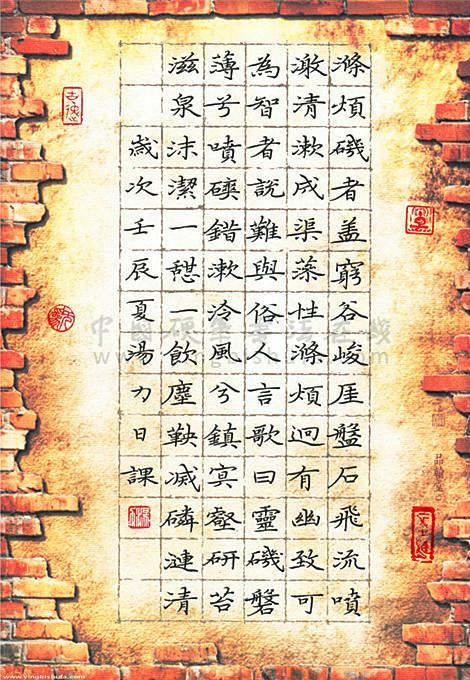 滌煩磯者盖窮谷峻厓盤石飛流噴
激清漱成渠藻性滌煩迥有幽致可
為智者說難與俗人言歌曰靈磯磐
薄兮噴磢錯漱泠風兮鎮冥壑研苔
滋泉沫潔一憇一飲塵鞅滅磷漣清
歲次壬辰夏湯力日課
www.yingbishufa.com